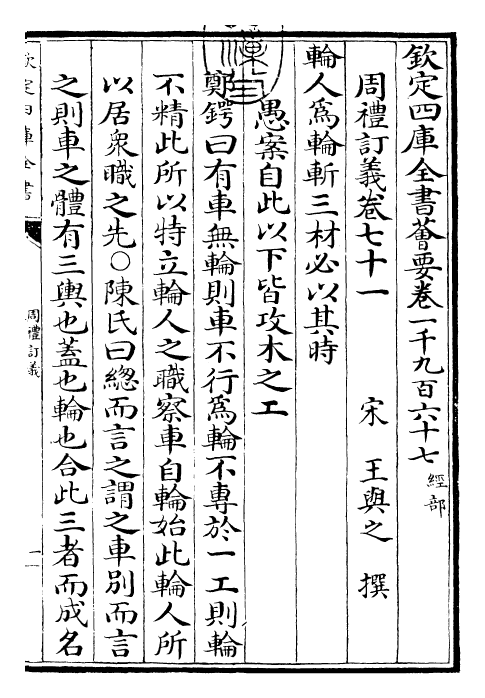 欽定四庫全書薈要卷一千九百六十七 經部
周禮訂義卷七十一 宋 王與之 撰
輪人為輪斬三材必以其時
愚案自此以下皆攻木之工
鄭鍔曰有車無輪則車不行為輪不專於一工則輪
不精此所以特立輪人之職察車自輪始此輪人所
以居衆職之先○陳氏曰總而言之謂之車別而言
之則車之體有三輿也蓋也輪也合此三者而成名
欽定四庫全書
周禮訂義
一